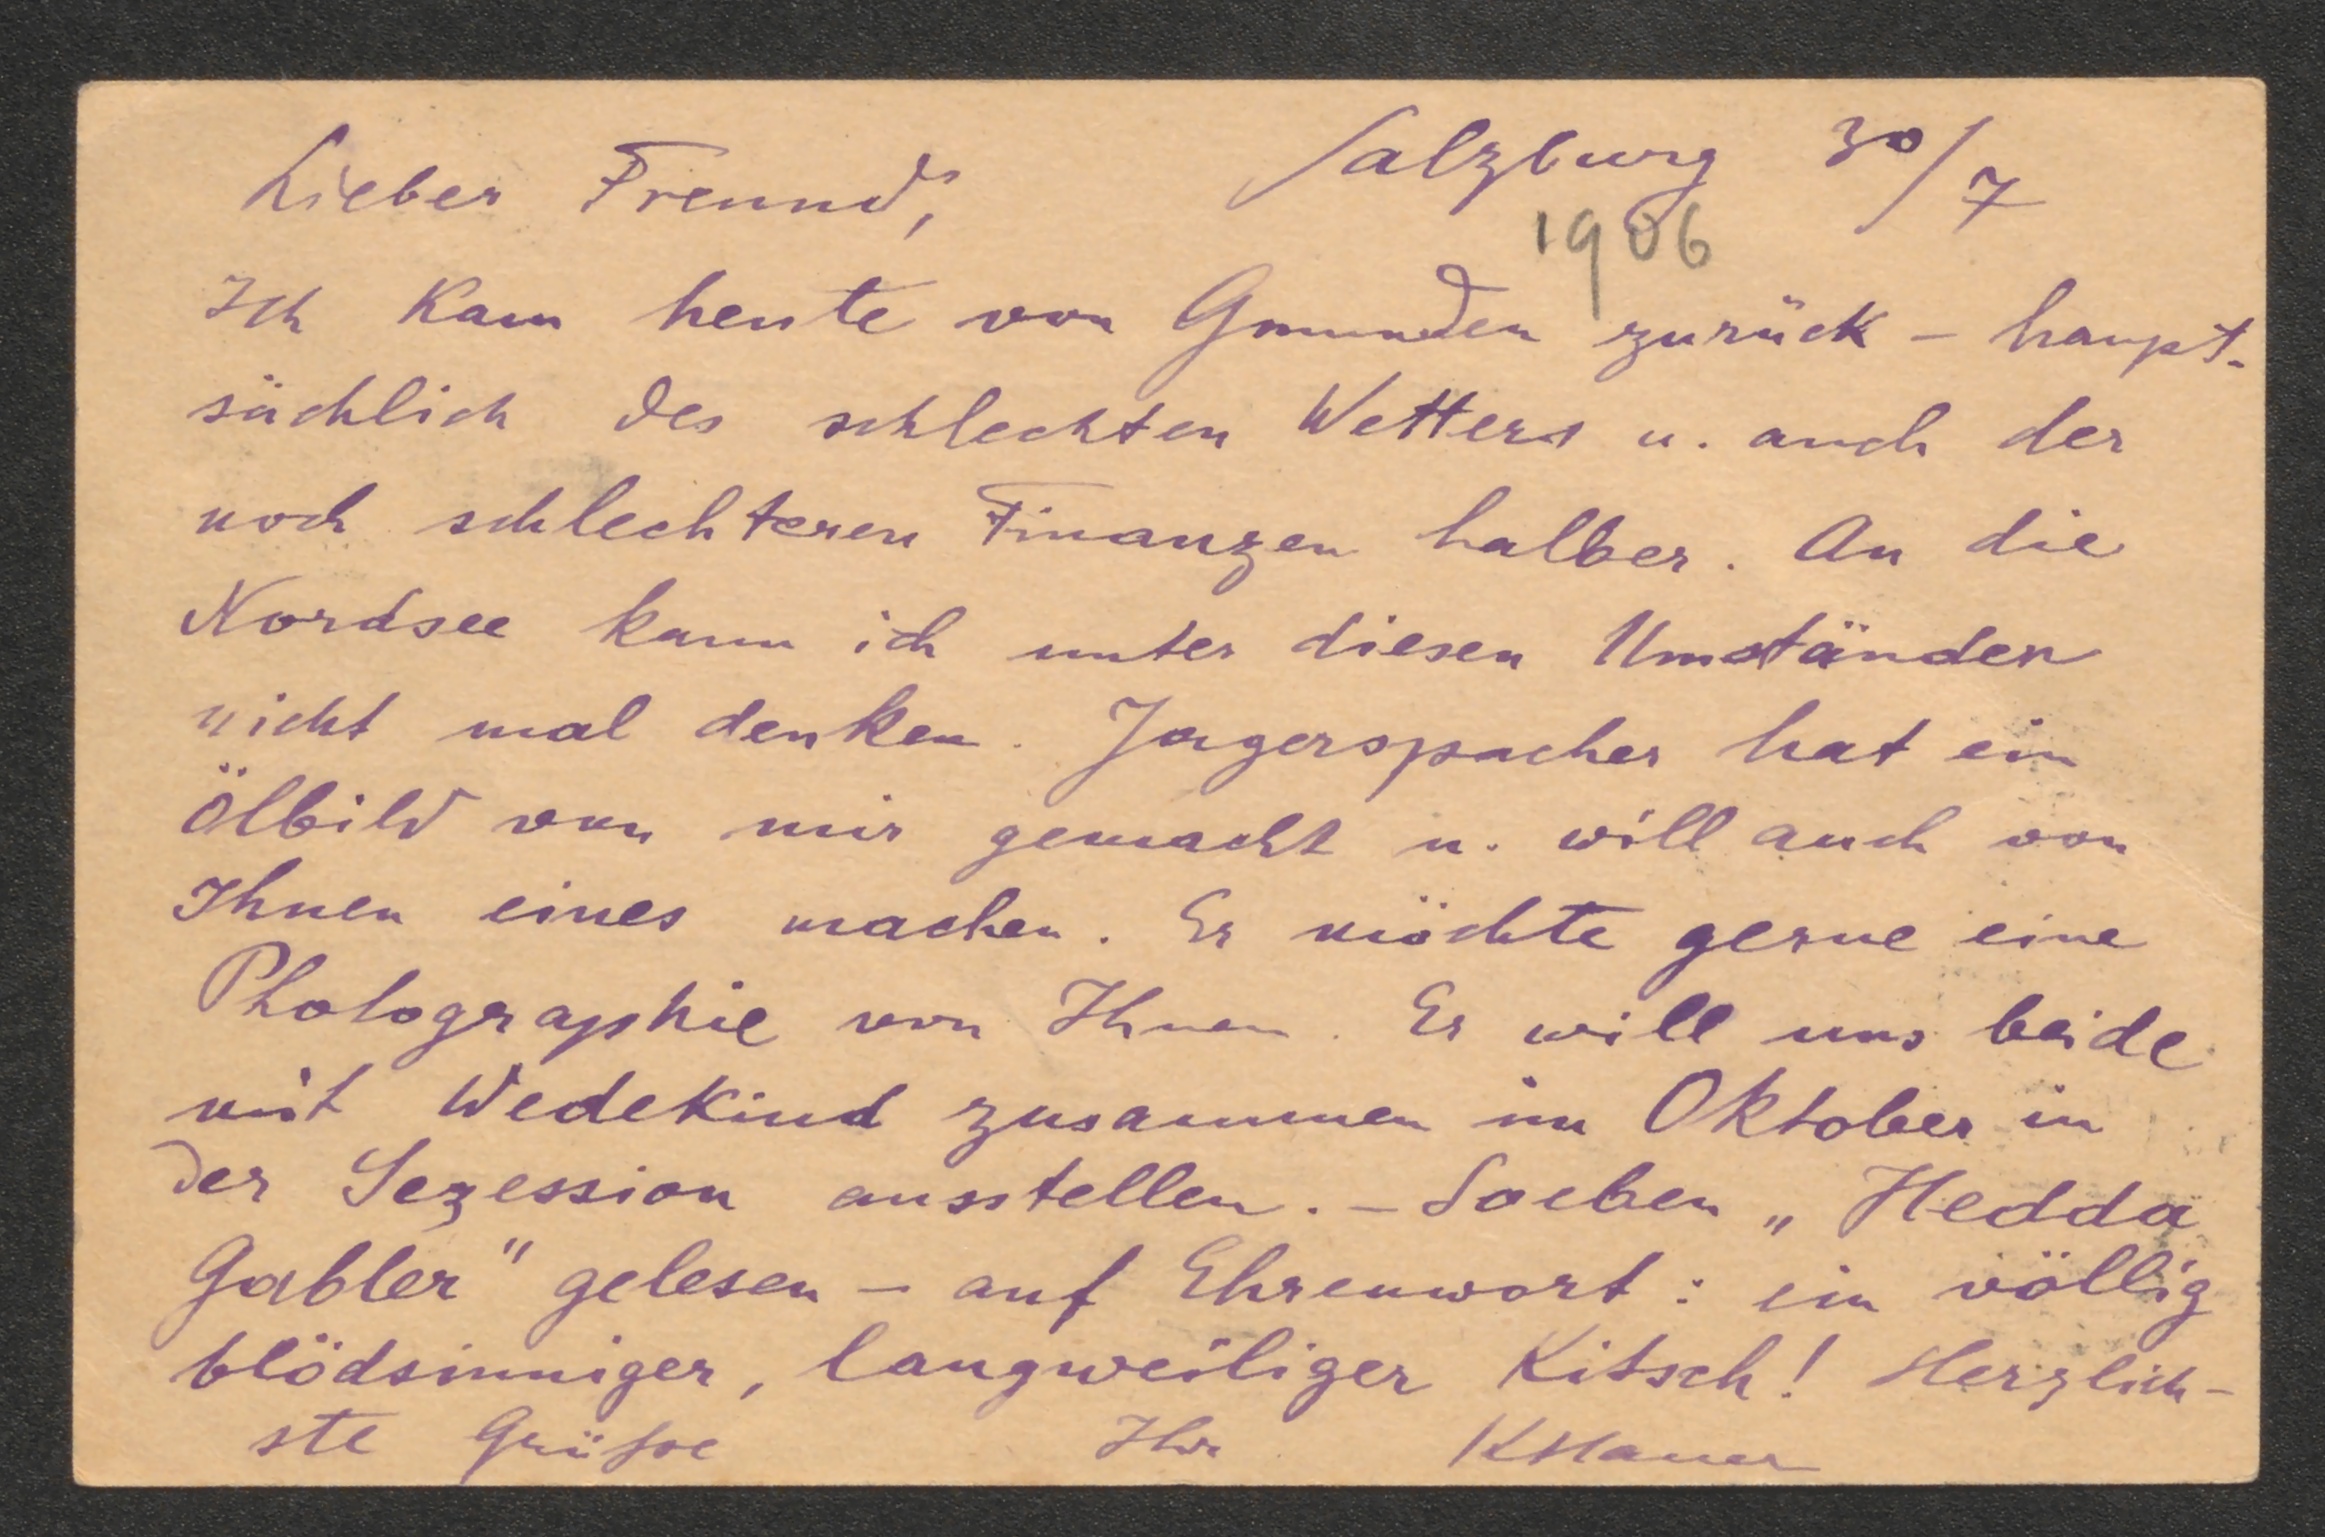 Lieber Freund, Salzburg 30/7
1906
Ich kam heute von Gmunden zurück – haupt-
sächlich des schlechten Wetters u. auch der
noch schlechteren Finanzen halber. An die
Nordsee kann ich unter diesen Umständen
nicht mal denken. Jagerspacher hat ein
Ölbild von mir gemacht u. will auch von
Ihnen eines machen. Er möchte gerne eine
Photographie von Ihnen. Er will uns beide
mit Wedekind zusammen im Oktober in
der Sezession ausstellen. – Soeben „Hedda
Gabler" gelesen – auf Ehrenwort: ein völlig
blödsinniger, langweiliger Kitsch! Herzlich-
ste Grüße Ihr